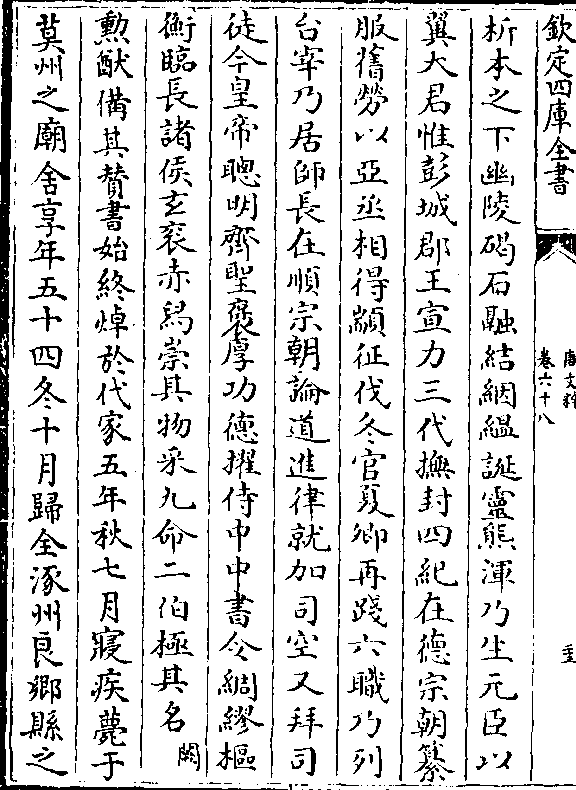 欽定四庫全書
唐文粹
卷六十八
析本之下幽陵碣石融結絪縕誕靈熊渾乃生元臣以
翼大君惟彭城郡王宣力三代撫封四紀在德宗朝纂
服舊勞以亞丞相得顓征伐冬官夏卿再踐六職乃列
台宰乃居師長在順宗朝論道進律就加司空又拜司
徒今皇帝聰明齊聖褒厚功德擢侍中中書令綢繆樞
衡臨長諸侯玄衮赤舄崇其物采九命二伯極其名闕
勲猷備其賛書始終焯於代家五年秋七月寢疾薨于
莫州之廟舍享年五十四冬十月歸全涿州良鄉縣之